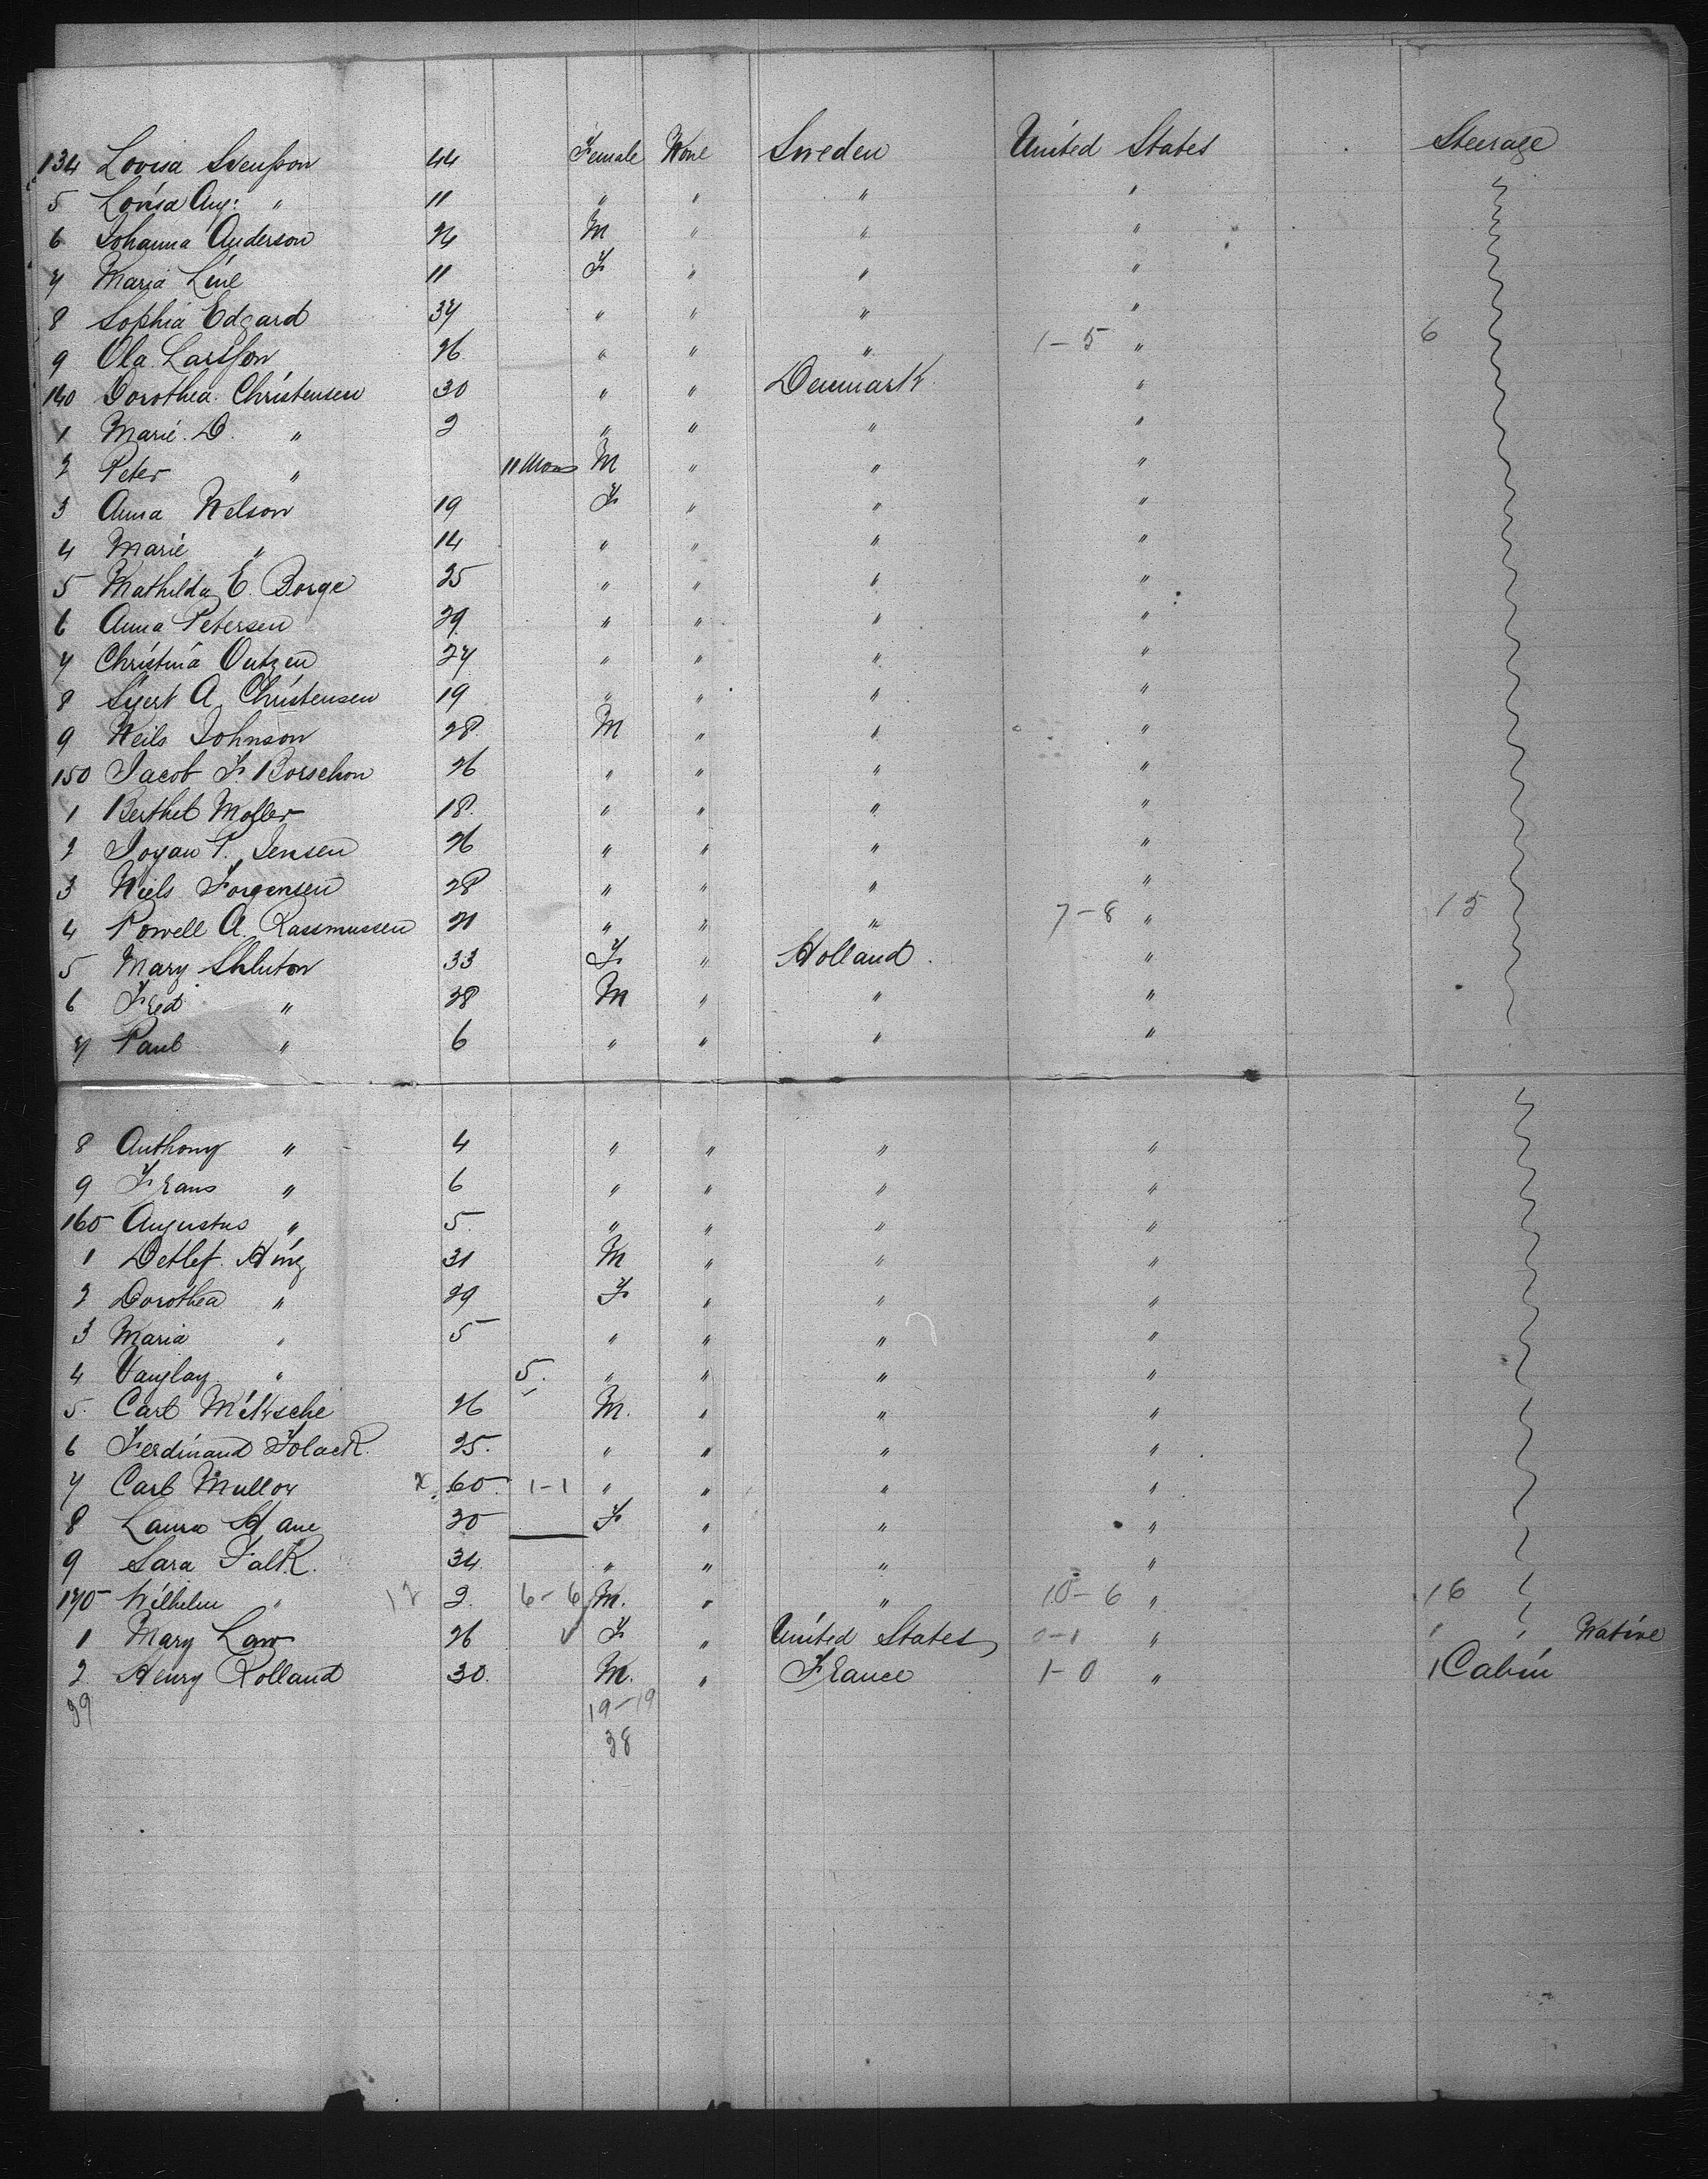 134 Lovisa Svenſson 44 Female None Sweden United States Steerage
5 Lovisa Aug: " 11 " " " "
6 Johanna Anderson 26 M " " "
7 Maria Line 11 F " " "
8 Sophia Edgard 37 " " " "
9 Ola Larsſon 26 " " " 1-5 " 6
140 Dorothea Christensen 30 " " Denmark "
1 Marie D. " 2 " " " "
2 Peter " 11 Mons M " " "
3 Anna Nelson 19 F " " "
4 Marie " 14 " " " "
5 Mathilda E. Borge 25 " " " "
6 Anna Petersen 29 " " " "
7 Christina Outzen 27 " " " "
8 A Christensen 19 " " " "
9 Neils Johnson 28 M " " "
150 Jacob F. Borschon 26 " " " "
1 Berthel Moller 18 " " " "
2 P. Jensen 26 " " " "
3 Niels Jorgensen 28 " " " "
4 Powell A. Rassmussen 21 " " " 7-8 " 15
5 Mary Shluton 33 F " Holland "
6 Fred " 38 M " " "
7 Paul " 6 " " " "
8 Anthony " 4 " " " "
9 Frans " 6 " " " "
160 Augustus " 5 " " " "
1 Detlef Hinz 31 M " " "
2 Dorothea " 29 F " " "
3 Maria " 5 " " " "
4 " 5 " " " "
5 Carl 26 M. " " "
6 Ferdinand 25 " " " "
7 Carl Mullow x 60 1-1 " " " "
8 Laura Hane 30 F " " "
9 Sara Falk 34 " " " "
170 Wilhelm " 12 2 6-6 M. " " 10-6 " 16 "
1 Mary Law 26 F " United States 0-1 " 1 " Native
2 Henry Rolland 30 M. " France 1-0 " 1 Cabin
39 19-19
38